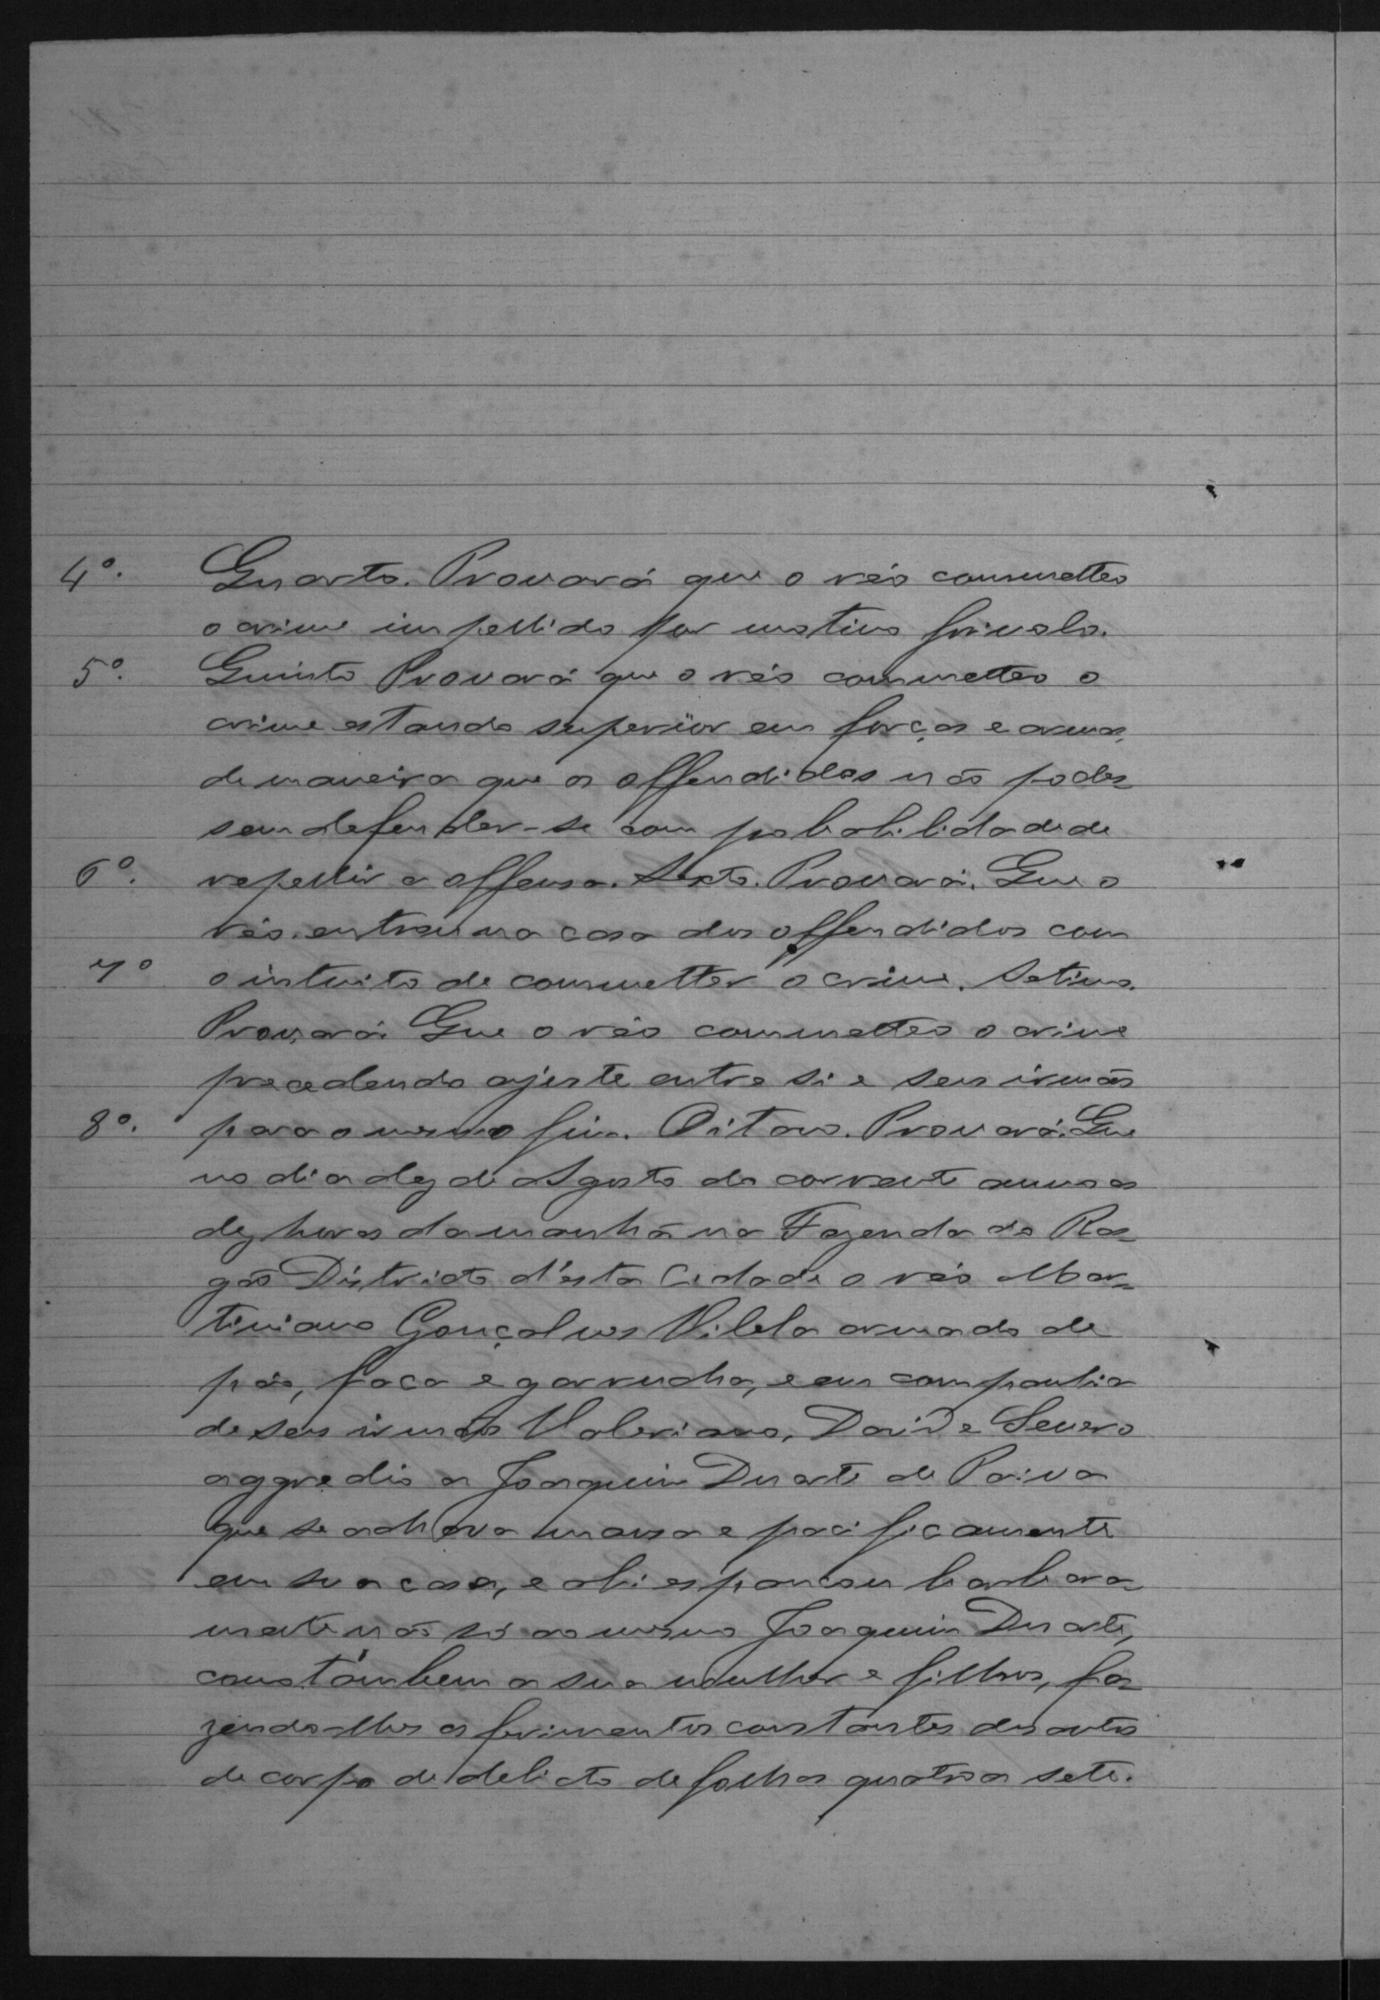 4º. Quarto. Provará que o réo commetteo
o crime impellido por motivo frivolo.
5º. Quinto Provará que o réo commetteo o
crime estando superior em forças e armas,
de maneira que os offendidos não podes-
sem defender-se com probabilidade de
6º. repellir a offensa. Sexto. Provará. Que o
réo entrou na casa dos offendidos com
7º o intuito de commetter o crime. Setimo.
Provará. Que o réo commetteo o crime
precedendo ajuste entre si e seus irmãos
8º. para o mesmo fim. Oitavo. Provará. Que
no dia dez de Agosto do corrente anno as
dez horas da manhã na Fazenda do Ras-
gão Districto d'esta Cidade o réo Mar-
tiniano Gonçalves Vilela armado de
páo, faca e garrucha, e em companhia
de seus irmãos Valeriano, David e Severo
aggredio a Joaquim Duarte de Paiva
que se achava mansa e pacificamente
em sua casa, e ahi espancou barbara-
mente não só ao mesmo Joaquim Duarte,
como támbem a sua mulher e filhos, fa-
zendo-lhes os ferimentos constantes dos autos
de corpo de delicto de folhas quatro a sete.